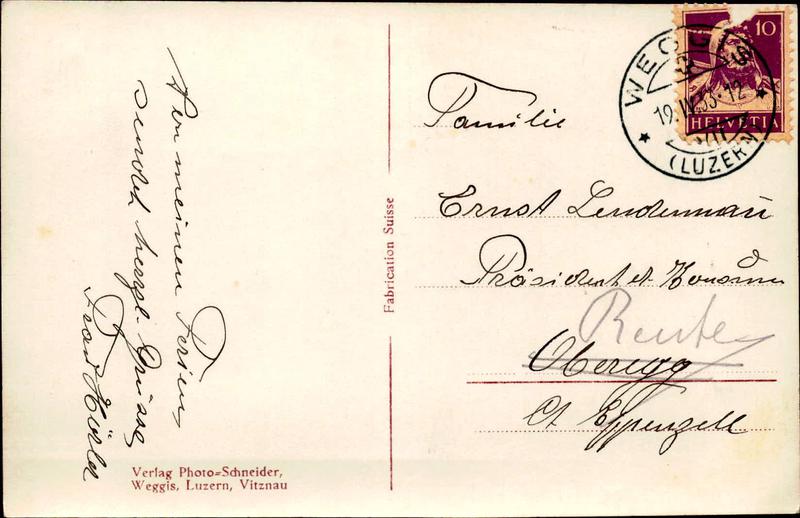 Von meinen Ferien
sendet herzl. Grüsse
Frau Hürle
Verlag Photo=Schneider,
Weggis, Luzern, Vitznau
Fabrication Suisse
10
HELVETIA
WEGGIS
19.IV.33-12
(LUZERN)
Familie
Ernst Lendenmann
Präsident d. Konsum
Reute
Oberegg
Ct. Appenzell